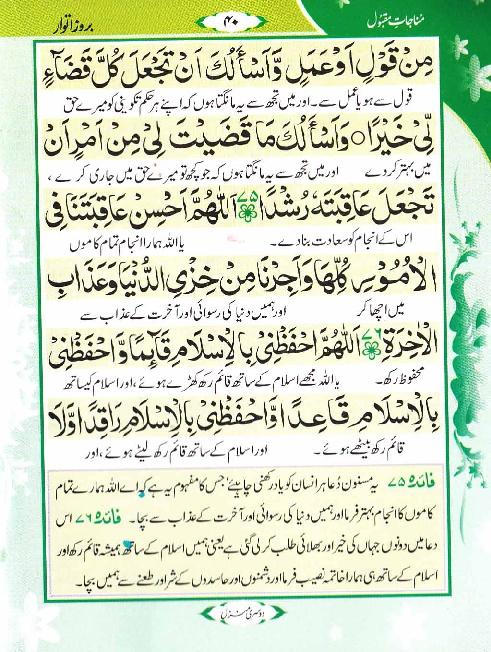 مناجاتِ مقبول
۴۰
بروز اتوار
مِنْ قَوْلٍ اَوْ عَمَلٍ وَّاَسْأَلُكَ اَنْ تَجْعَلَ كُلَّ قَضَآءٍ
قول سے ہو یا عمل سے۔ اور میں تجھ سے یہ مانگتا ہوں کہ اپنے ہر حکم تکوینی کو میرے حق
لِّیْ خَیْرًا ○ وَاَسْأَلُكَ مَا قَضَیْتَ لِیْ مِنْ اَمْرٍ اَنْ
میں بہتر کر دے اور میں تجھ سے یہ مانگتا ہوں کہ جو کچھ تو میرے حق میں جاری کرے،
تَجْعَلَ عَاقِبَتَهٗ رُشْدًا ۷۵ اَللّٰهُمَّ اَحْسِنْ عَاقِبَتَنَا فِی
اس کے انجام کو سعادت بنا دے۔ یا اللہ ہمارا انجام تمام کاموں
الْاُمُوْرِ كُلِّهَا وَاَجِرْنَا مِنْ خِزْیِ الدُّنْیَا وَعَذَابِ
میں اچھا کر اور ہمیں دنیا کی رسوائی اور آخرت کے عذاب سے
الْاٰخِرَةِ ۷۶ اَللّٰهُمَّ احْفَظْنِیْ بِالْاِسْلَامِ قَآئِمًا وَّاحْفَظْنِیْ
محفوظ رکھ۔ یا اللہ مجھے اسلام کے ساتھ قائم رکھ کھڑے ہوئے، اور اسلام کیساتھ
بِالْاِسْلَامِ قَاعِدًا وَّاحْفَظْنِیْ بِالْاِسْلَامِ رَاقِدًا وَّلَا
قائم رکھ بیٹھے ہوئے۔ اور اسلام کے ساتھ قائم رکھ لیٹے ہوئے، اور
فائدہ ۷۵ یہ مسنون دُعا ہر انسان کو یاد رکھنی چاہئے جس کا مفہوم یہ ہے کہ اے اللہ ہمارے تمام
کاموں کا انجام بہتر فرما اور ہمیں دنیا کی رسوائی اور آخرت کے عذاب سے بچا۔ فائدہ ۷۶ اس
دعا میں دونوں جہاں کی خیر اور بھلائی طلب کر لی گئی ہے یعنی ہمیں اسلام کے ساتھ ہمیشہ قائم رکھ اور
اسلام کے ساتھ ہی ہمارا خاتمہ نصیب فرما اور دشمنوں اور حاسدوں کے شر اور طعنے سے ہمیں بچا۔
دوسری منزل